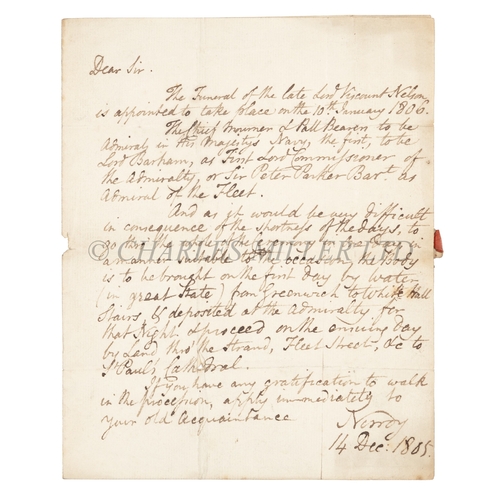 Dear Sir.
The Funeral of the late Lord Viscount Nelson
is appointed to take place on the 10th January 1806.
The Chief Mourner & Pall Bearers to be
Admirals in His Majestys Navy, the first, to be
Lord Barham, as First Lord Commissioner of
the Admiralty, or Sir Peter Parker Bart. as
Admiral of the Fleet.
And as it would be very difficult
in consequence of the shortness of the days, to
go thro' the whole of the Ceremony
in a suitable to the occasion the Body
© CHARLES MILLER LTD
is to be brought on the first day by water
(in great State) from Greenwich to White Hall
Stairs, & deposited at the Admiralty for
that Night & proceed on the ensuing day
by Land thro' the Strand, Fleet Street, &c to
St Paul's Cathedral.
If you have any gratification to walk
in the procession, apply immediately to
your old Acquaintance
Norroy
14 Dec: 1805.